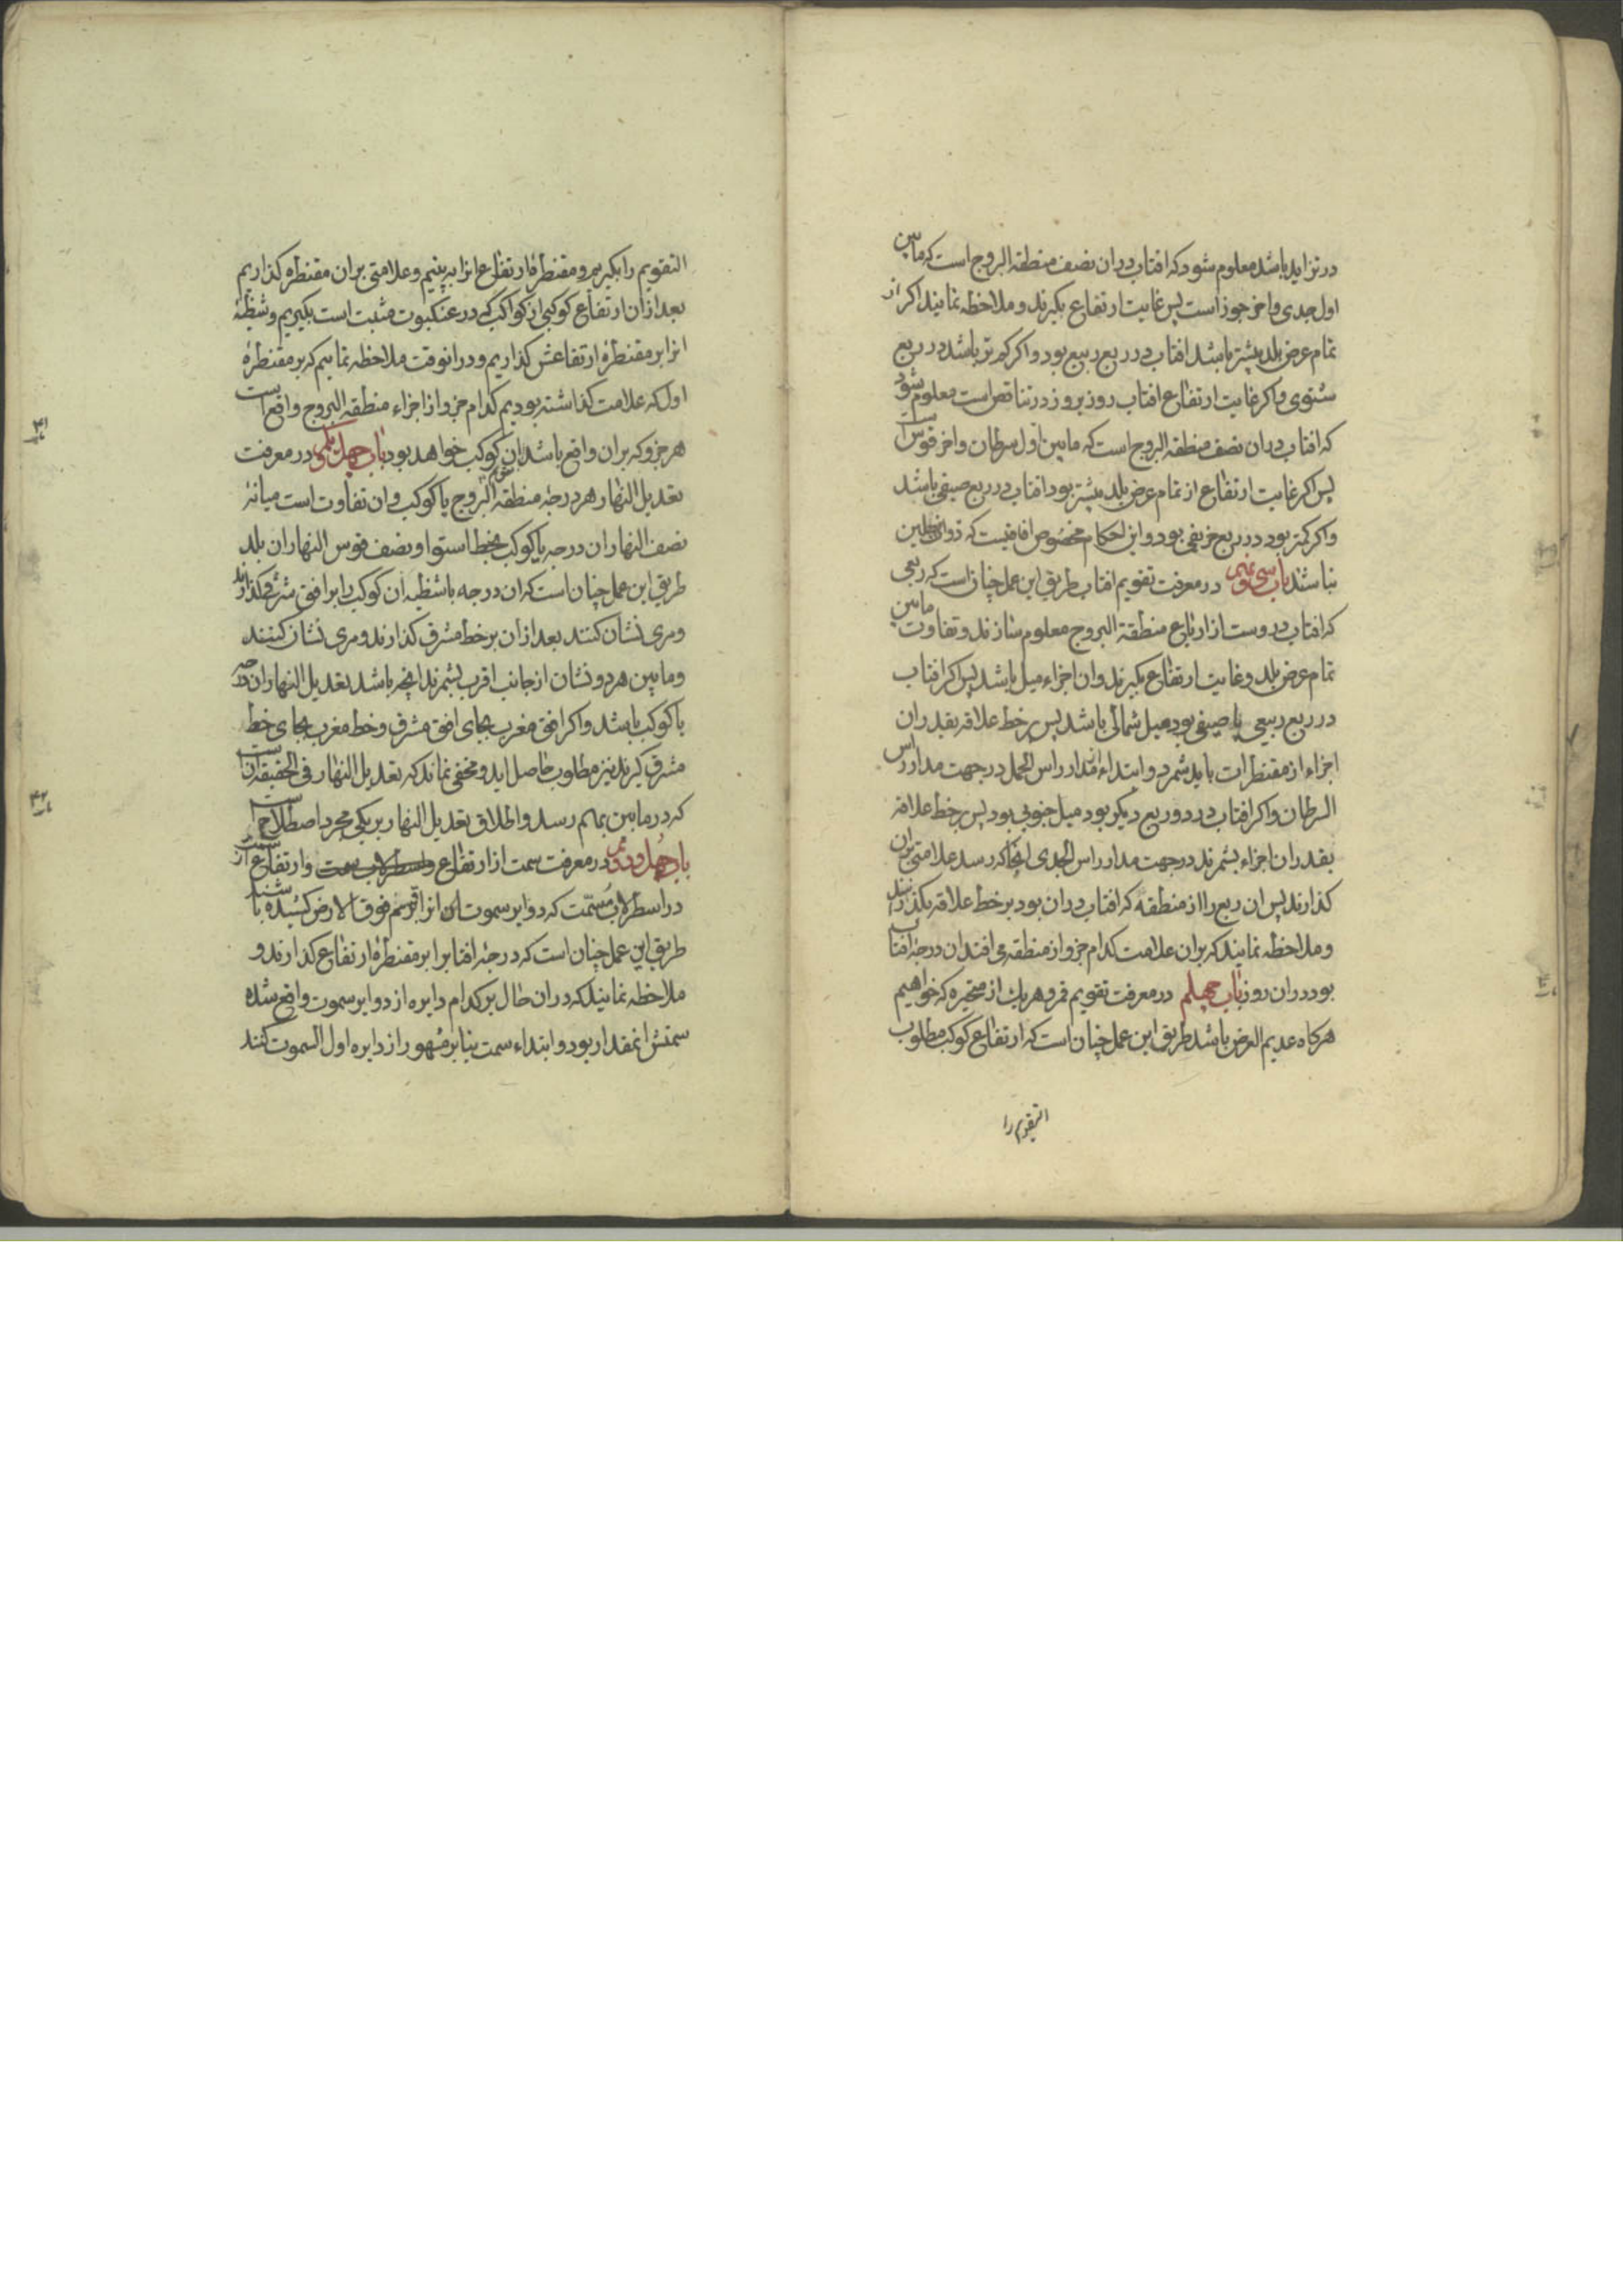 در تزاید باشد معلوم شود که افتاب در ان نصف منطقه البروج است که مابین
اول جدی و اخر جوزاست پس غایت ارتفاع بگیرند و ملاحظه نمایند اکر از
تمام عرض بلد بیشتر باشد افتاب در ربع ربیع بود و اکر کمتر باشد در ربع
شتوی و اکر غایت ارتفاع افتاب روز بروز در تناقص است معلوم شود
که افتاب در ان نصف منطقه البروج است که مابین اول سرطان و اخر قوس است
پس اکر غایت ارتفاع از تمام عرض بلد بیشتر بود افتاب در ربع صیفی باشد
و اکر کمتر بود در ربع خریفی بود و این احکام مخصوص افاقیست که ذو ظلین
نباشند باب سی و نهم در معرفت تقویم افتاب طریق این عمل چنان است که ربعی
که افتاب در وست از ارباع منطقة البروج معلوم سازند و تفاوت مابین
تمام عرض بلد و غایت ارتفاع بگیرند و ان اجزاء میل باشد پس اکر افتاب
در ربع ربیعی یا صیفی بود میل شمالی باشد پس بر خط علاقه بقدر ان
اجزاء از مقنطرات باید شمرد و ابتداء از مدار راس الحمل در جهت مدار راس
السرطان و اکر افتاب در دو ربع دیکر بود میل جنوبی بود پس بر خط علاقه
بقدر ان اجزاء بشمرند در جهت مدار راس الجدی انجا که رسد علامتی بران
کذارند پس ان ربع را از منطقه که افتاب دران بود بر خط علاقه بکذرانند
و ملاحظه نمایند که بران علامت کدام جزو از منطقه می افتد ان درجه افتاب
بود در ان روز باب چهلم در معرفت تقویم قمر و هریك از متحیره که خواهیم
هرکاه عدیم العرض باشد طریق این عمل چنان است که ارتفاع کوکب مطلوب
التقویم را
التقویم را بکیریم و مقنطرهٔ ارتفاع انرا به بینیم و علامتی بران مقنطره کذاریم
بعد ازان ارتفاع کوکبی از کواکب که در عنکبوت مثبت است بکیریم و شظیهٔ
انرا بر مقنطرهٔ ارتفاعش کذاریم و درانوقت ملاحظه نماییم که بر مقنطرهٔ
اول که علامت کذاشته بودیم کدام جزو از اجزاء منطقه البروج واقع است
هر جزو که بران واقع باشد ان تقویم کوکب خواهد بود باب چهل یکم در معرفت
تعدیل النهار هر درجهٔ منطقه البروج یا کوکب و ان تفاوت است میانهٔ
نصف النهار ان درجه یا کوکب بخط استوا و نصف قوس النهار ان بلد
طریق این عمل چنان است که ان درجه یا شظیه ان کوکب را بر افق مشرق کذارند
و مری نشان کنند بعد ازان بر خط مشرق کذارند و مری نشان کنند
و مابین هر دو نشان از جانب اقرب بشمرند انچه باشد تعدیل النهار ان درجه
یا کوکب باشد و اکر افق مغرب بجای افق مشرق و خط مغرب بجای خط
مشرق کیرند نیز مطلوب حاصل اید و مخفی نماند که تعدیل النهار فی الحقیقه ان است
که در مابین بهم رسد و اطلاق تعدیل النهار بر یکی مجرد اصطلاح است
باب چهل و دوم در معرفت سمت از ارتفاع و ارتفاع از سمت
در اسطرلاب مسمت که دوایر سموت انرا قسم فوق الارض کشیده باشند
طریق این عمل چنان است که درجهٔ افتاب را بر مقنطرهٔ ارتفاع کذارند و
ملاحظه نمایند که دران حال بر کدام دایره از دوایر سموت واقع شده
سمتش انمقدار بود و ابتداء سمت بنابر مشهور از دایره اول السموت کنند
۴۱
۴۲